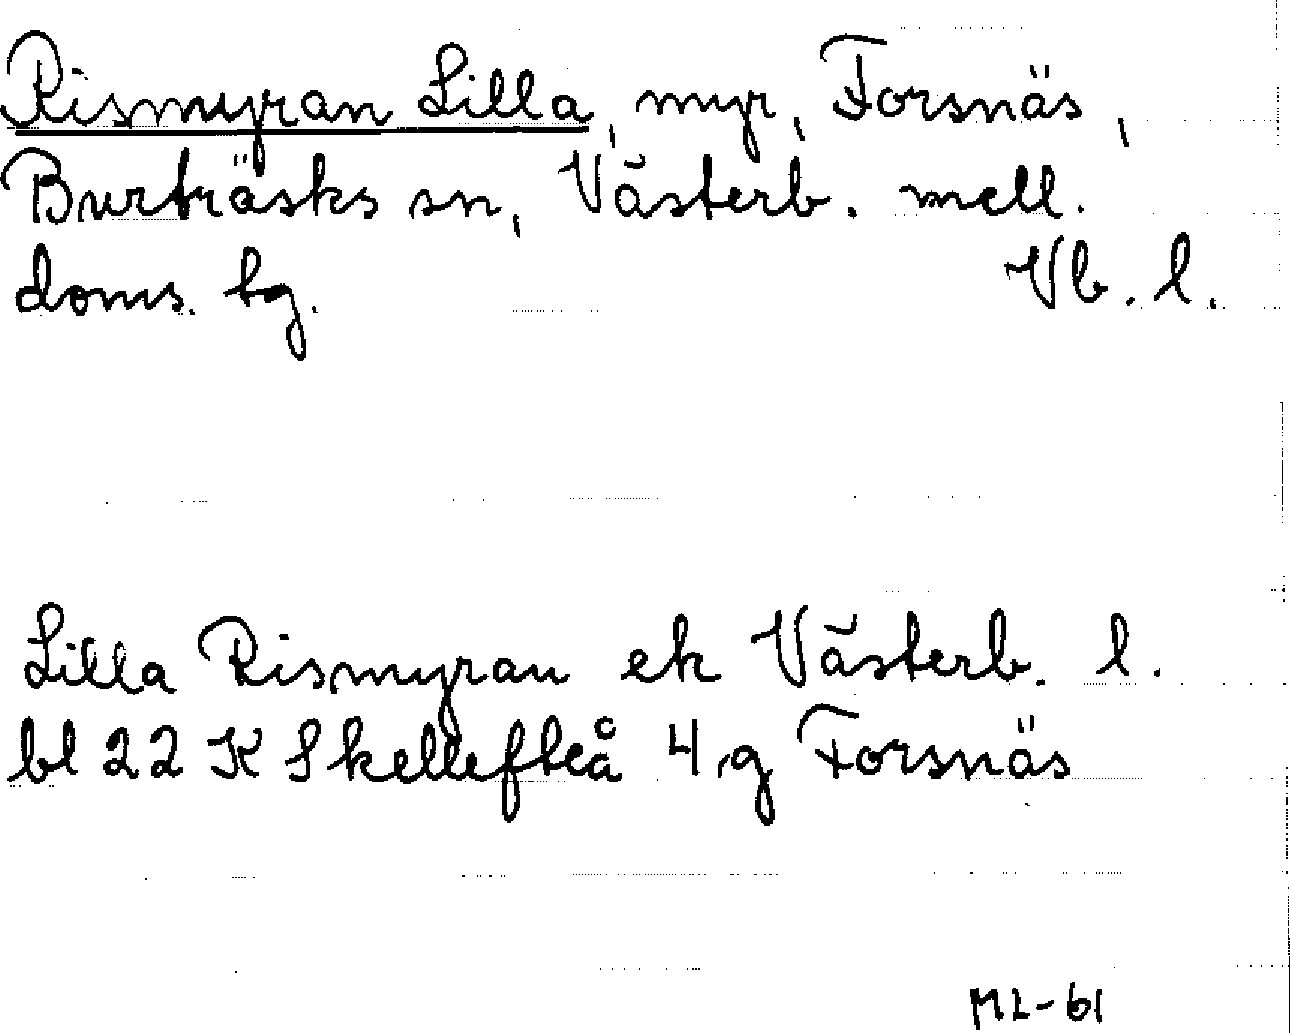 Rismyran Lilla, myr, Forsnäs,
Burträsks sn, Västerb. mell.
doms. tg. Vb. l.
Lilla Rismyran ek Västerb. l.
bl 22 K Skellefteå 4 g Forsnäs
ML-61